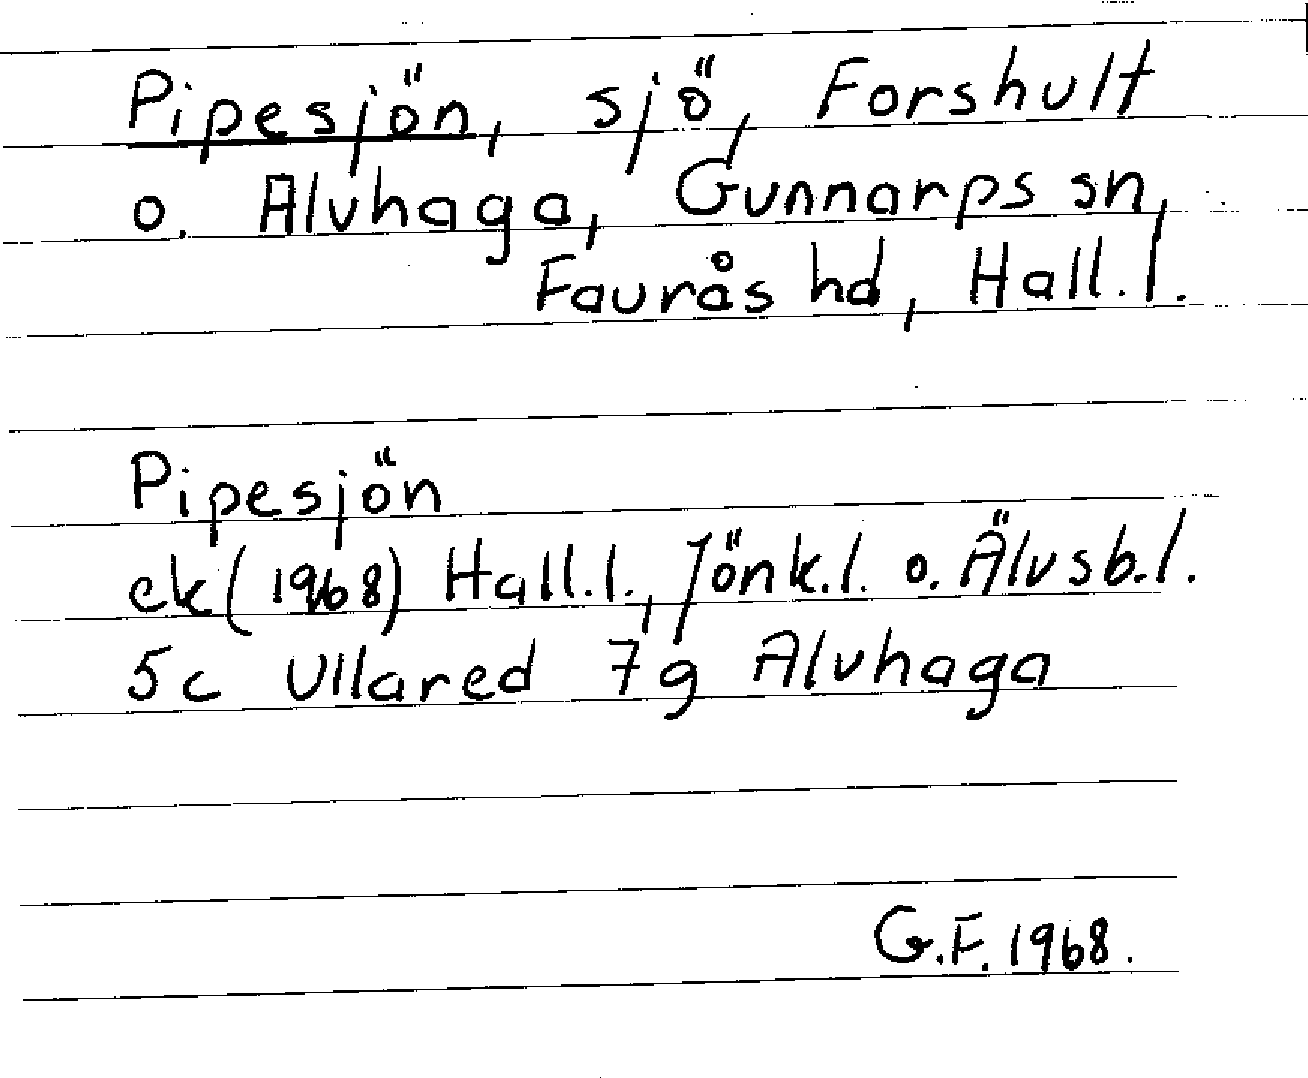 Pipesjön, sjö, Forshult
o. Alvhaga, Gunnarps sn,
Faurås hd, Hall.l.
Pipesjön
ek(1968) Hall.l., Jönk.l. o. Älvsb.l.
5c Ullared 7g Alvhaga
G.F. 1968.